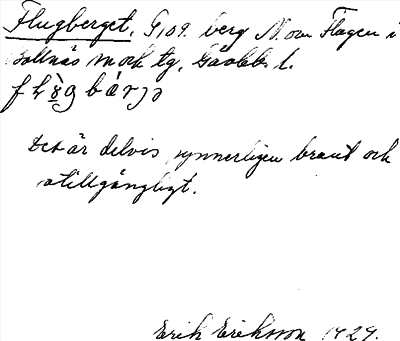 Flugberget, G109. berg N. om Flagen i
Bollnäs sn och tg, Gävleb. l.
Det är delvis synnerligen brant och
otillgängligt.
Erik Eriksson 1929.